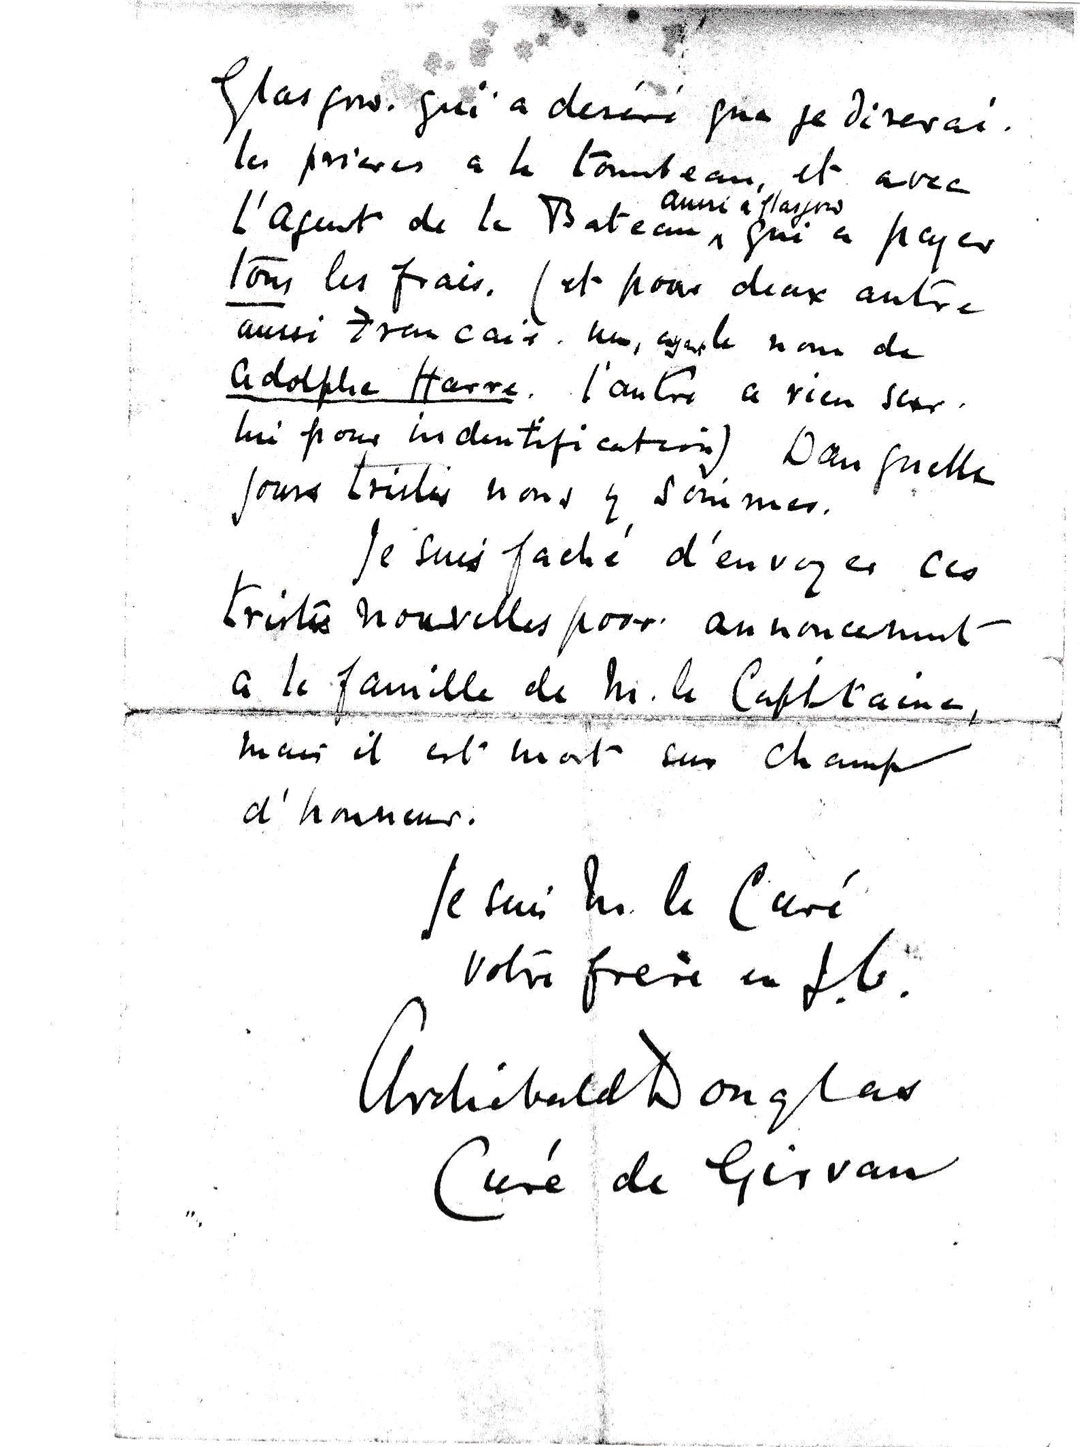 Glasgow. qui a deséré que je diserai.
les prieres a le tombeau, et avec
aussi a Glasgow
L'Agent de le Bateau, ^ qui a payer
tous les frais. (et pour deux autre
aussi Francais. un, ayant le nom de
Adolphe Harre. l'autre a rien sur.
lui pour indentification) Dan quelle
jours tristes nous y sommes.
Je suis faché d'envoyer ces
tristes nouvelles pour announcement
a le famille de M. le Capitaine,
mais il est mort sur champ
d'honneur.
Je suis M. le Curé
votre frere en J.C.
Archibald Douglas
Curé de Girvan